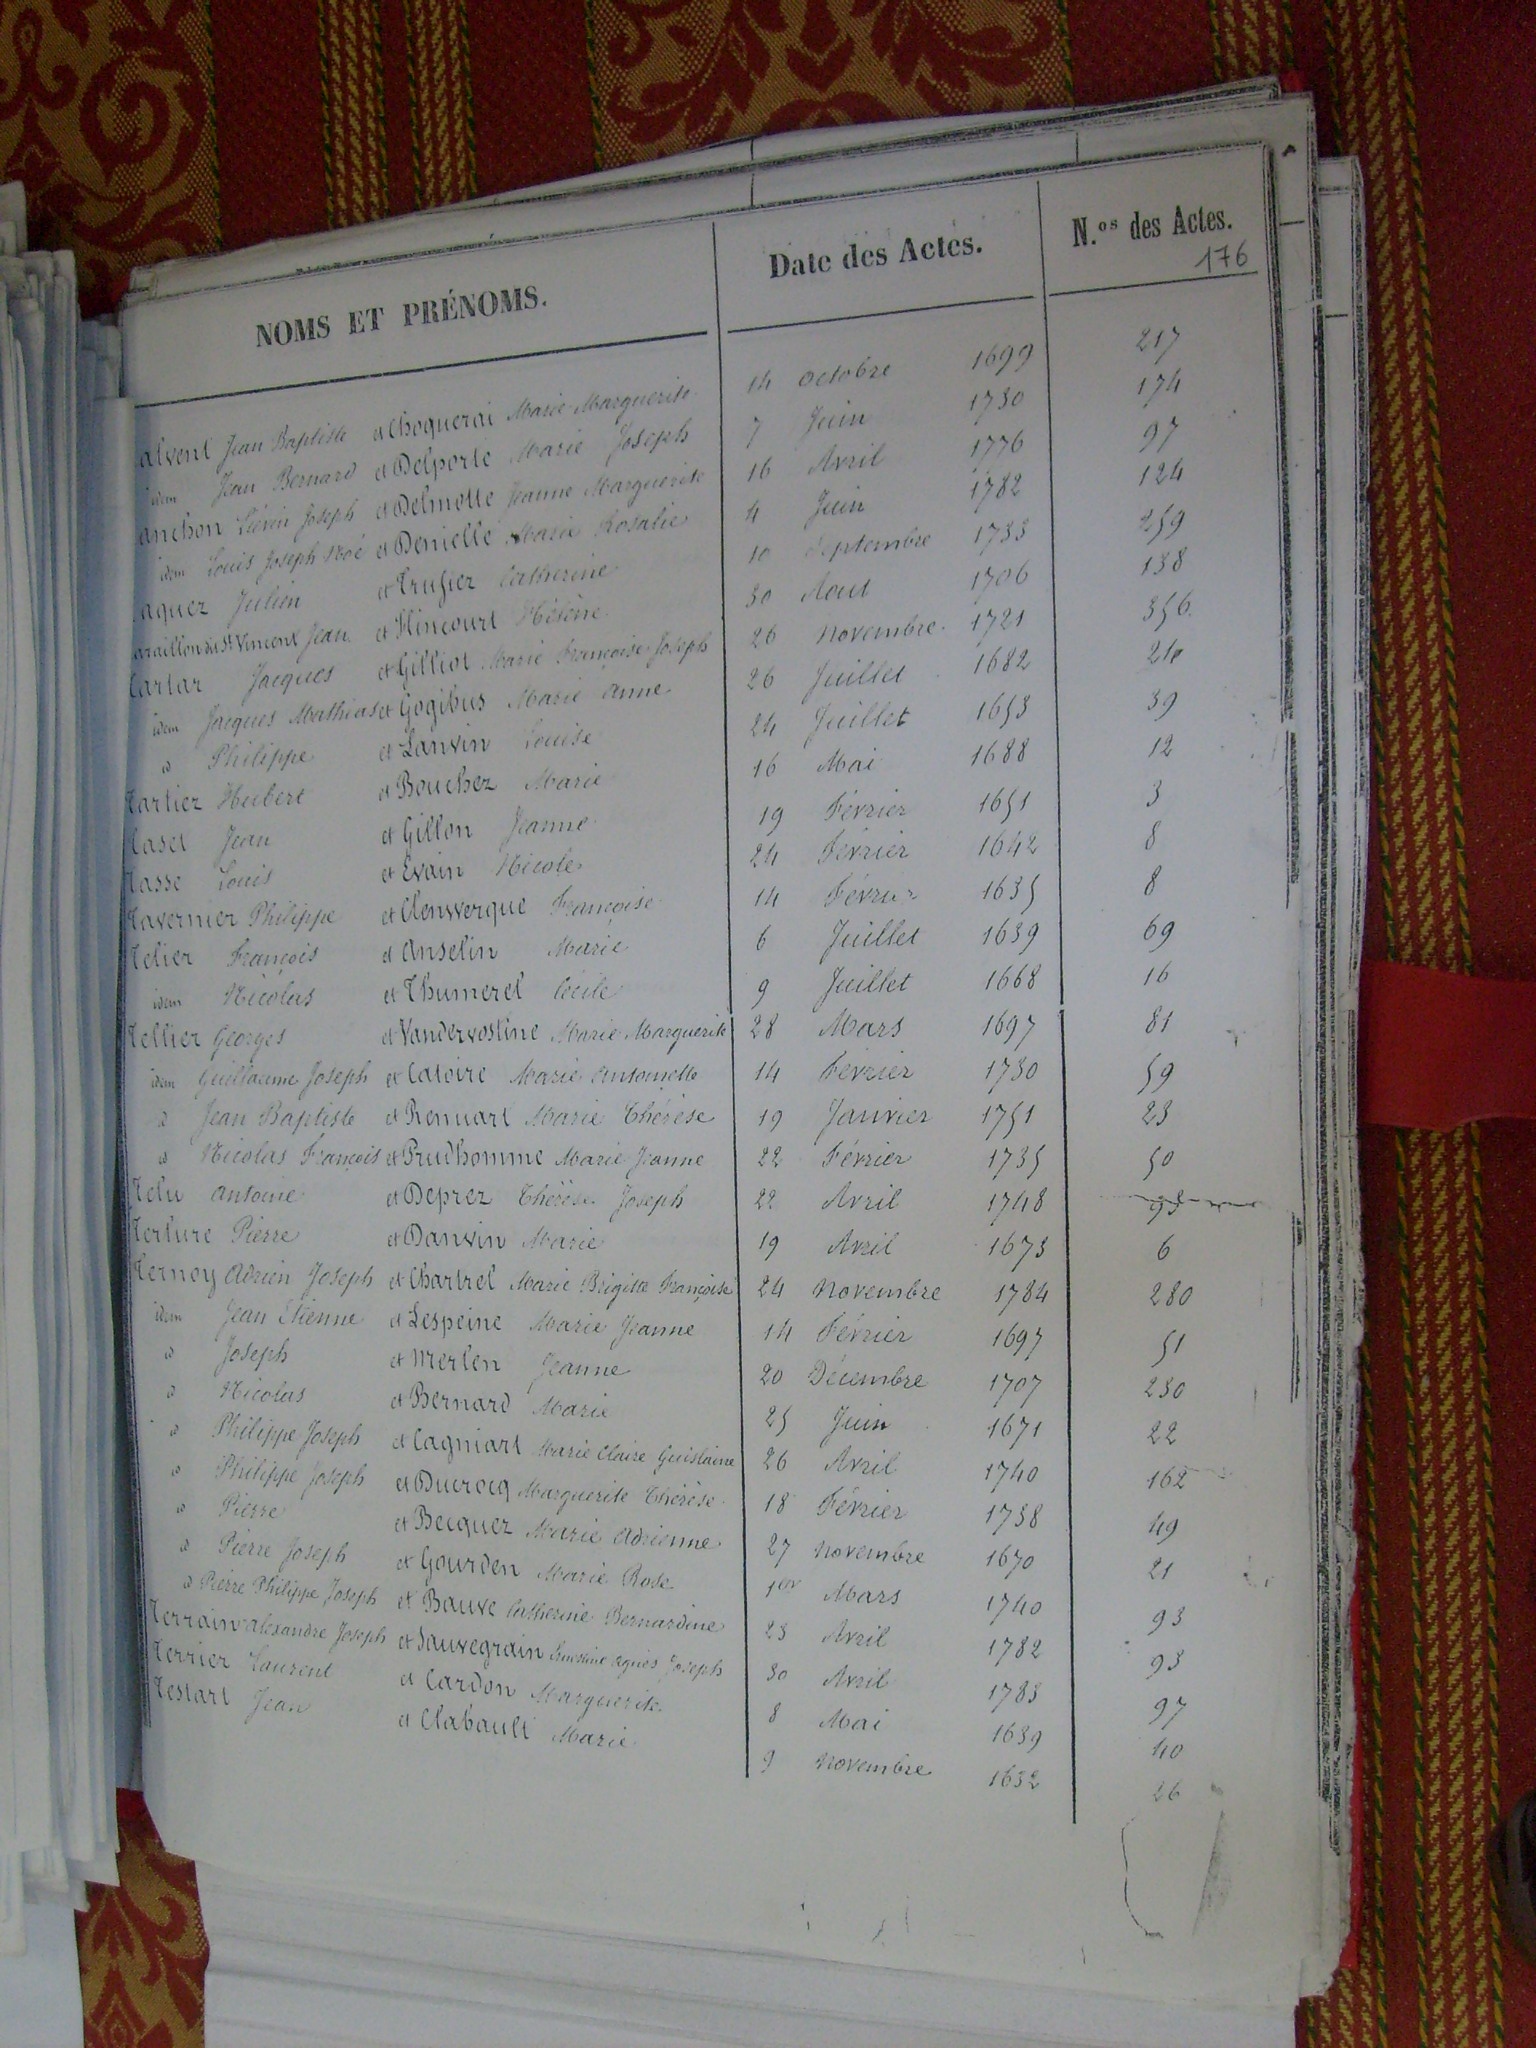 NOMS ET PRÉNOMS. Date des Actes. N.os des Actes.
176
alvent Jean Baptiste et Choquerai Marie Marguerite 14 octobre 1699 217
idem Jean Bernard et Delporte Marie Joseph 7 Juin 1730 174
anchon Liévin Joseph et Delmotte Jeanne Marguerite 16 Avril 1776 97
idem Louis Joseph Noé et Denielle Marie Rosalie 4 Juin 1782 124
aquez Julien et Trufiez Catherine 10 Septembre 1733 259
araillon du St Vincent Jean et Hincourt Hélène 30 Aout 1706 138
Tartar Jacques et Gilliot Marie Françoise Joseph 26 novembre 1721 356
idem Jacques Mathias et Gogibus Marie anne 26 Juillet 1682
d Philippe et Lanvin Louise 24 Juillet 1653 39
Tartiez Hubert et Bouchez Marie 16 Mai 1688 12
Tasel Jean et Gillon Jeanne 19 Février 1651 3
Tasse Louis et Evain Nicole 24 Février 1642 8
Tavernier Philippe et Clenwerque Françoise 14 Février 1635 8
Telier François et anselin Marie 6 Juillet 1639 69
idem Nicolas et Thumerel Cécile 9 Juillet 1668 16
Tellier Georges et Vandervostine Marie Marguerite 28 Mars 1697 81
idem Guillaume Joseph et Catoire Marie antoinette 14 Février 1730 59
d Jean Baptiste et Renuart Marie Thérèse 19 Janvier 1751 23
d Nicolas François et Prudhomme Marie Jeanne 22 Février 1735 50
Telu antoine et Deprez Thérèse Joseph 22 Avril 1748 95
Terture Pierre et Danvin Marie 19 Avril 1673 6
Ternoy Adrien Joseph et Chartrel Marie Brigitte Françoise 24 novembre 1784 280
idem Jean Etienne et Lespeine Marie Jeanne 14 Février 1697 51
d Joseph et Merlen Jeanne 20 Décembre 1707 230
d Nicolas et Bernard Marie 25 Juin 1671 22
d Philippe Joseph et Cagniart Marie Claire Guislaine 26 Avril 1740 162
d Philippe Joseph et Ducrocq Marguerite Thérèse 18 Février 1738 49
d Pierre et Becquez Marie Adrienne 27 novembre 1670 21
d Pierre Joseph et Gourden Marie Rose 1er Mars 1740 93
d Pierre Philippe Joseph et Bauve Catherine Bernardine 23 Avril 1782 93
Terrain alexandre Joseph et Sauvegrain agnès Joseph 30 Avril 1783 97
Terrier Laurent et Cardon Marguerite 8 Mai 1639 40
Testart Jean et Clabault Marie 9 novembre 1632 26